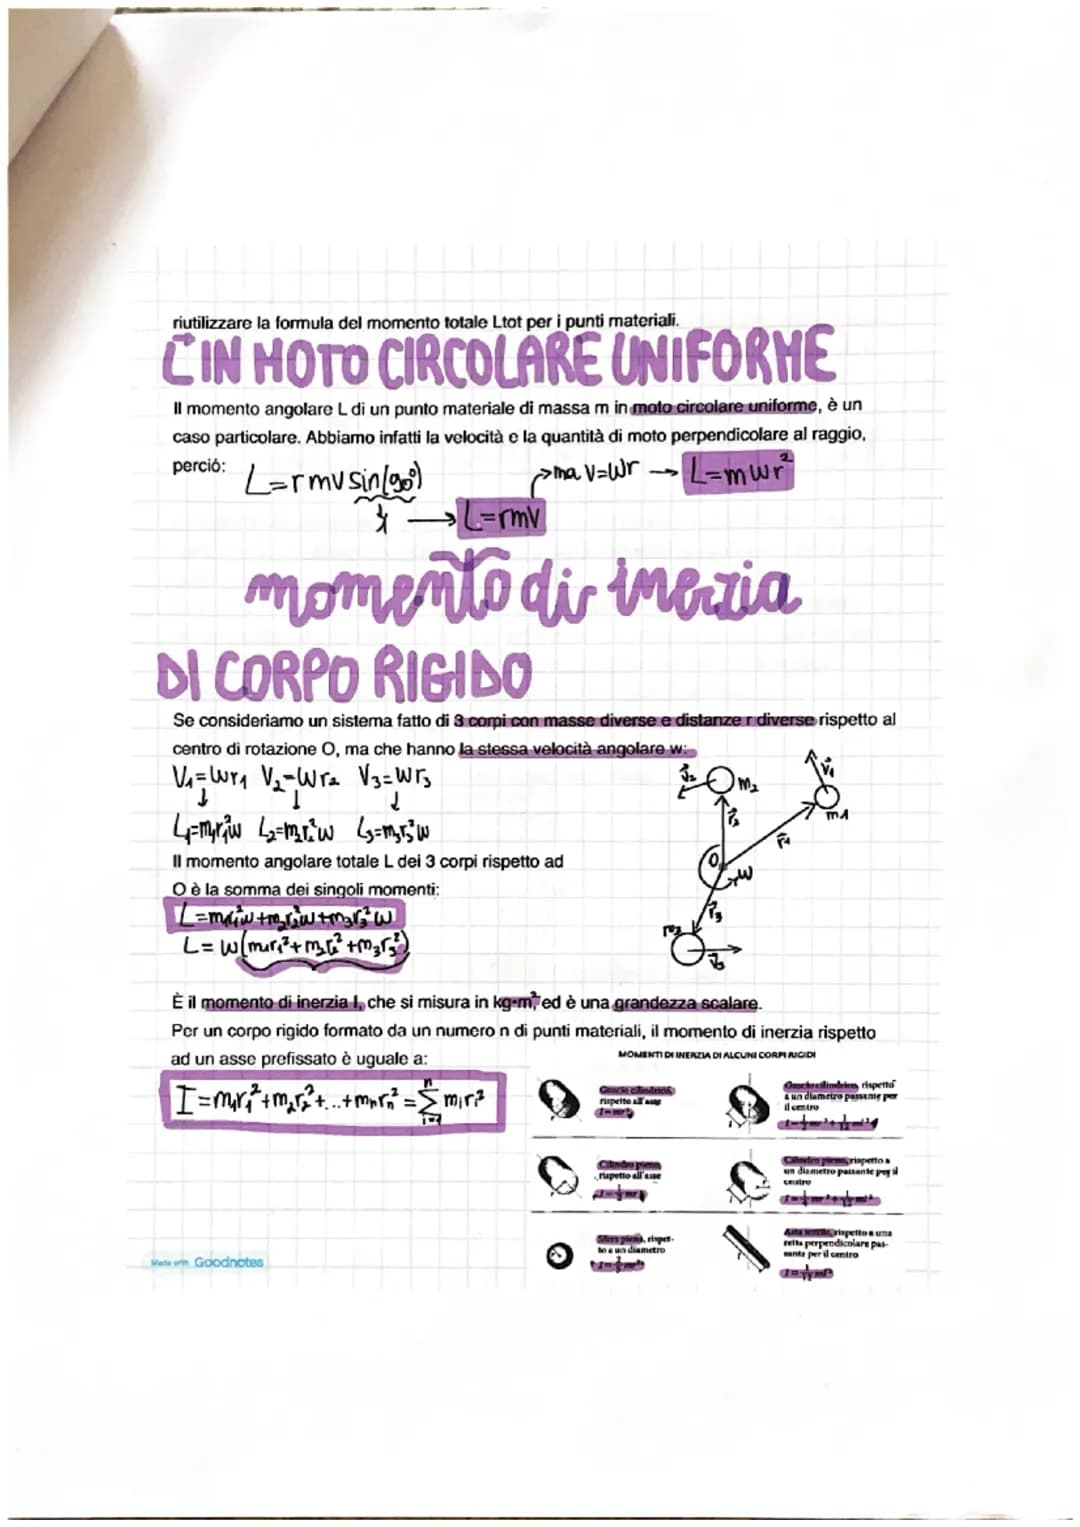 riutilizzare la formula del momento totale Ltot per i punti materiali.
L IN MOTO CIRCOLARE UNIFORME
Il momento angolare L di un punto materiale di massa m in moto circolare uniforme, è un
caso particolare. Abbiamo infatti la velocità e la quantità di moto perpendicolare al raggio,
perciò:
L=rmvsin(90°)
1 → L=rmv
→ ma v=wr → L=mwr²
momento di inerzia
DI CORPO RIGIDO
Se consideriamo un sistema fatto di 3 corpi con masse diverse e distanze r diverse rispetto al
centro di rotazione O, ma che hanno la stessa velocità angolare w:
V₁=wr₁ V₂=wr₂ V₃=wr₃
↓ ↓ ↓
L₁=m₁r₁²w L₂=m₂r₂²w L₃=m₃r₃²w
Il momento angolare totale L dei 3 corpi rispetto ad
O è la somma dei singoli momenti:
L=m₁r₁²w+m₂r₂²w+m₃r₃²w
L=w(m₁r₁²+m₂r₂²+m₃r₃²)
v₂ m₂ v₁ m1
r₂ r₁
O w
r₃
m₃ v₃
È il momento di inerzia I, che si misura in kg•m², ed è una grandezza scalare.
Per un corpo rigido formato da un numero n di punti materiali, il momento di inerzia rispetto
ad un asse prefissato è uguale a:
I=m₁r₁²+m₂r₂²+...+mₙrₙ²=∑ⁿᵢ₌₁ mᵢrᵢ²
MOMENTI DI INERZIA DI ALCUNI CORPI RIGIDI
Guscio cilindrico,
rispetto all'asse
I=mr²
Guscio cilindrico, rispetto
a un diametro passante per
il centro
I=½mr²+1/12 ml²
Cilindro pieno,
rispetto all'asse
Cilindro pieno, rispetto a
un diametro passante per il
centro
Sfera piena, rispet-
to a un diametro
Asta sottile, rispetto a una
retta perpendicolare pas-
sante per il centro
I=1/12 ml²
Made with Goodnotes